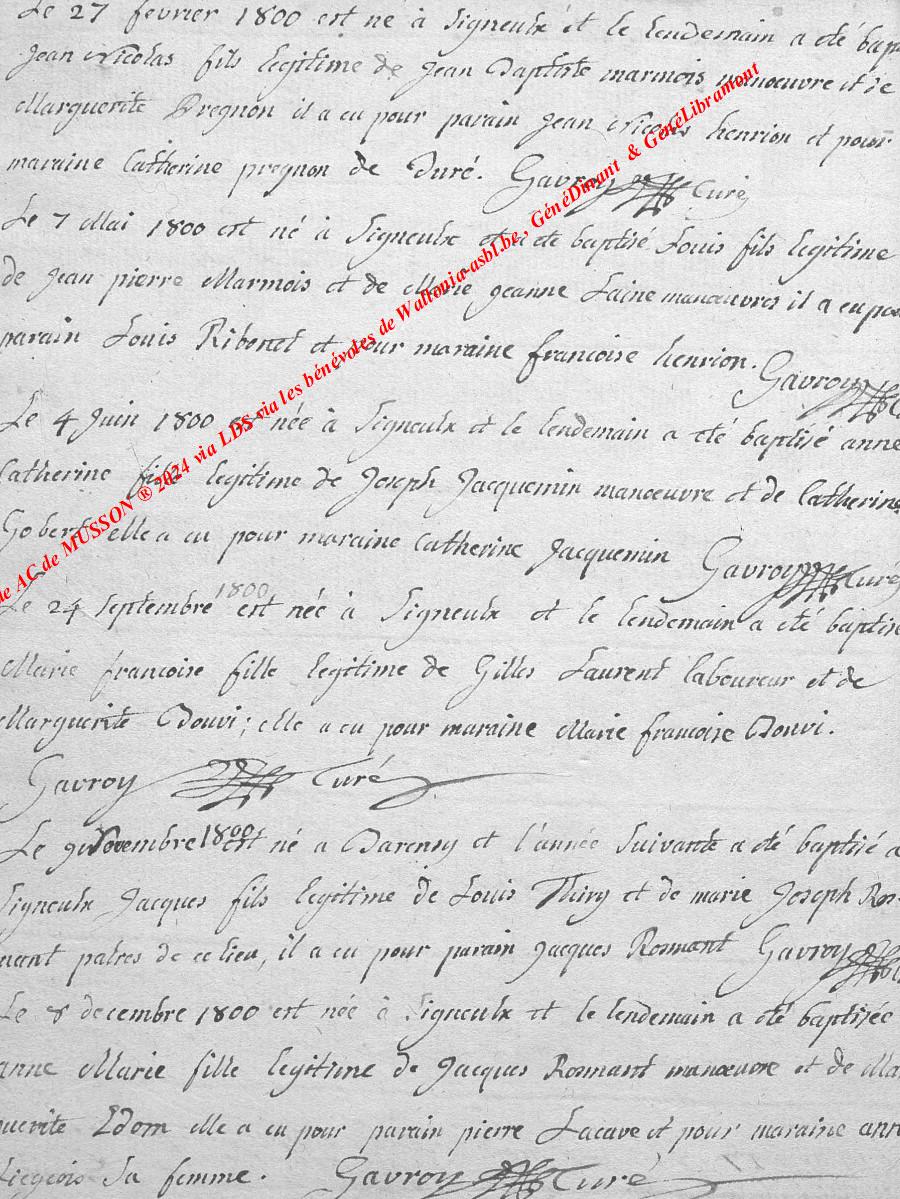 Le 27 fevrier 1800 est né à Signeulx et le lendemain a été bap
Jean Nicolas fils legitime de Jean Baptiste marmois manoeuvre et de
Marguerite Pregnon il a eu pour parain Jean Nicolas henrion et pour
maraine Catherine pregnon de Buré. Gavroy Curé
Le 7 Mai 1800 est né à Signeulx et a été baptisé Louis fils legitime
de Jean pierre Marmois et de Marie jeanne Laine manoeuvres il a eu pou
parain Louis Ribonet et pour maraine francoise henrion. Gavroy
Le 4 Juin 1800 est née à Signeulx et le lendemain a été baptisé anne
Catherine fille legitime de Joseph Jacquemin manoeuvre et de Catherine
Gobert elle a eu pour maraine Catherine Jacquemin Gavroy Curé
Le 24 Septembre 1800 est née à Signeulx et le lendemain a été baptisé
Marie francoise fille legitime de Gilles Laurent laboureur et de
Marguerite Bouvi; elle a eu pour maraine Marie francoise Bouvi.
Gavroy Curé
Le 9 Novembre 1800 est né a Barensy et l'année Suivante a été baptisé a
Signeulx Jacques fils legitime de Louis Thiry et de marie Joseph Ros-
nant patres de ce lieu, il a eu pour parain Jacques Rosnant Gavroy
Le 8 decembre 1800 est née à Signeulx et le lendemain a été baptisée
anne Marie fille legitime de Jacques Rosnant manoeuvre et de Mar
guerite Edom elle a eu pour parain pierre Lacave et pour maraine anne
Liegeois Sa femme. Gavroy Curé
de AC de MUSSON ® 2024 via LDS via les bénévoles de Wallonia-asbl.be , GénéDinant & GénéLibramont